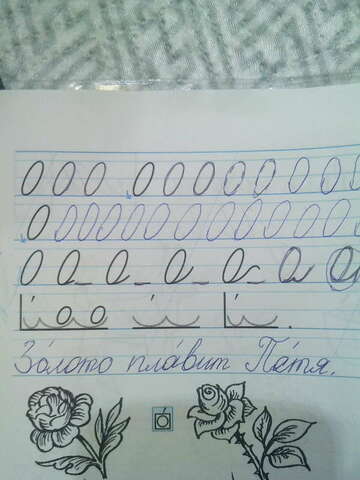 О О О О О О О О О О О
О О О О О О О О О О О О О О
О О О О О О О
Зо́лото пла́вит Пе́тя.
о́